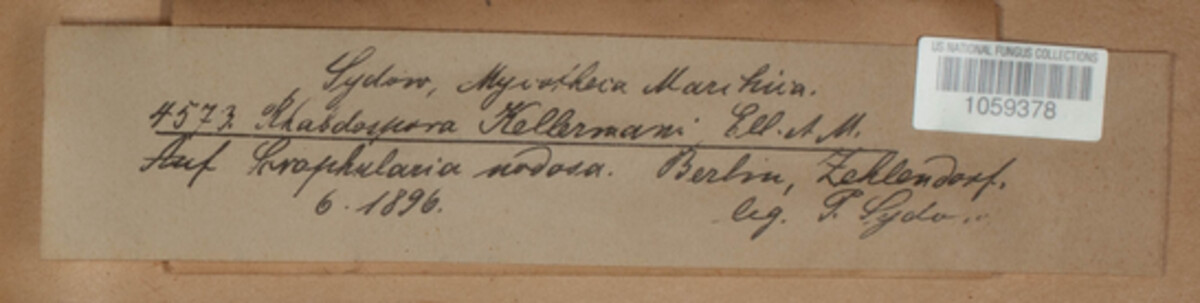 US NATIONAL FUNGUS COLLECTIONS
1059378
Sydow, Mycotheca Marchica.
4573. Rhabdospora Kellermani Ell. et M.
Auf Scrophularia nodosa. Berlin, Zehlendorf.
6. 1896. leg. P. Sydow.